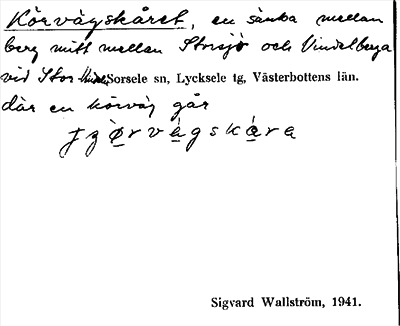 Körvägskåret, en sänka mellan
berg mitt mellan Storsjö och Vindelberga
vid Stor Sorsele sn, Lycksele tg, Västerbottens län.
där en körväg går
Sigvard Wallström, 1941.